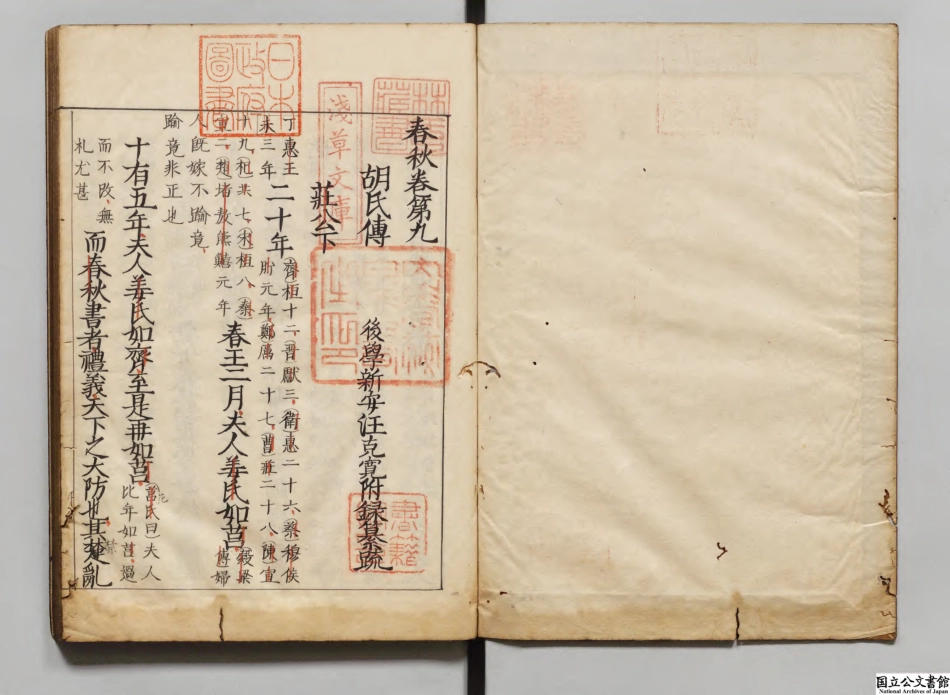 春秋巻第九
胡氏傳 後學新安汪克寛附録纂疏
莊公下
丁惠王
未三年
二十年
齊桓十二晉獻三衛惠二十六蔡穆侯
肸元年鄭厲二十七曹莊二十八陳宣
十九杞共七宋桓八秦
宣二楚堵敖熊囏元年
春王二月夫人姜氏如莒
穀梁
傳婦
人既嫁不踰竟
踰竟非正也
十有五年夫人姜氏如齊至是再如莒
氏曰夫人
比年如莒過
而不改無
札尤甚
而春秋書者禮義天下之大防也其禁亂
日本政府圖書
淺草文庫
林氏藏書
国立公文書館
National Archives of Japan